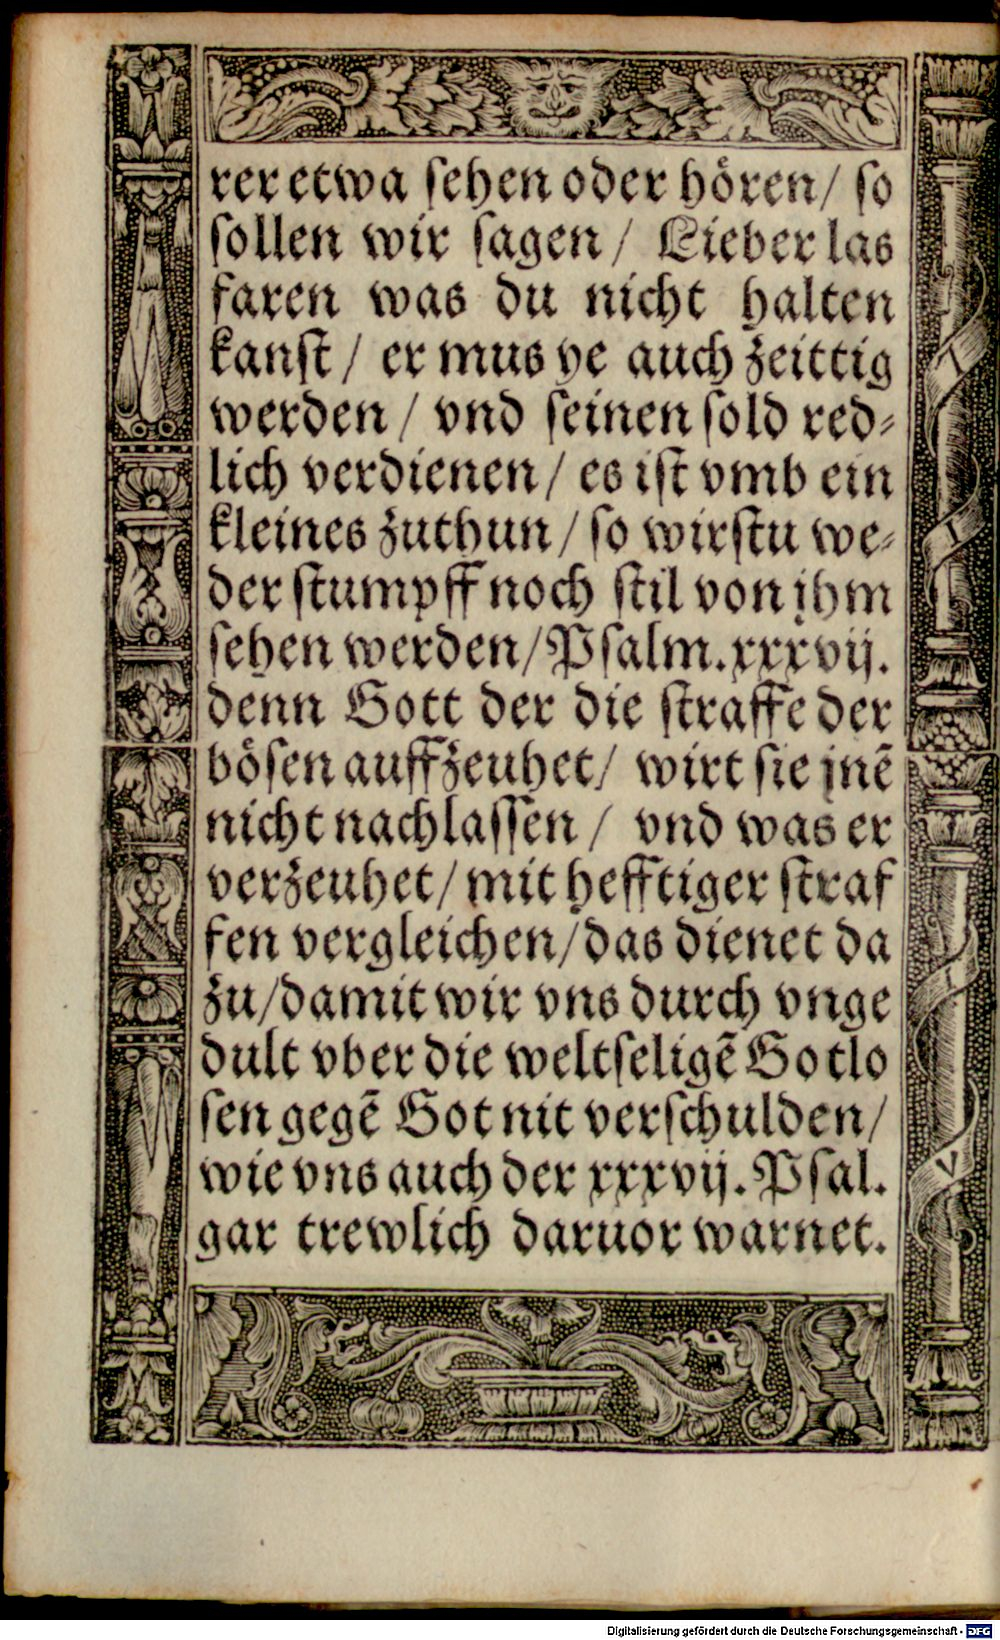 rer etwa sehen oder hören/ so
sollen wir sagen/ Lieber las
faren was du nicht halten
kanst/ er mus ye auch zeittig
werden/ vnd seinen sold red⸗
lich verdienen/ es ist vmb ein
kleines zuthun/ so wirstu we⸗
der stumpff noch stil von jhm
sehen werden/Psalm.xxxvij.
denn Gott der die straffe der
bösen auffzeuhet/ wirt sie jnē
nicht nachlassen/ vnd was er
verzeuhet/ mit hefftiger straf
fen vergleichen/das dienet da
zu/damit wir vns durch vnge
dult vber die weltseligē Gotlo
sen gegē Got nit verschulden/
wie vns auch der xxxvij. Psal.
gar trewlich daruor warnet.
Digitalisierung gefördert durch die Deutsche Forschungsgemeinschaft - DFG